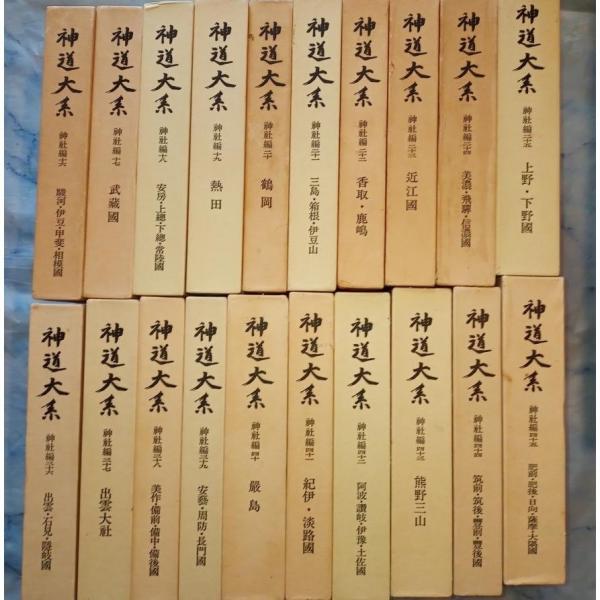 神道大系
神社編十六
駿河・伊豆・甲斐・相模國
神道大系
神社編十七
武蔵國
神道大系
神社編十八
安房・上總・下總・常陸國
神道大系
神社編十九
熱田
神道大系
神社編二十
鶴岡
神道大系
神社編二十一
三島・箱根・伊豆山
神道大系
神社編二十二
香取・鹿嶋
神道大系
神社編二十三
近江國
神道大系
神社編二十四
美濃・飛驒・信濃國
神道大系
神社編二十五
上野・下野國
神道大系
神社編三十六
出雲・石見・隱岐國
神道大系
神社編三十七
出雲大社
神道大系
神社編三十八
美作・備前・備中・備後國
神道大系
神社編三十九
安藝・周防・長門國
神道大系
神社編四十
嚴島
神道大系
神社編四十一
紀伊・淡路國
神道大系
神社編四十二
阿波・讚岐・伊豫・土佐國
神道大系
神社編四十三
熊野三山
神道大系
神社編四十四
筑前・筑後・豐前・豐後國
神道大系
神社編四十五
肥前・肥後・日向・薩摩・大隅國